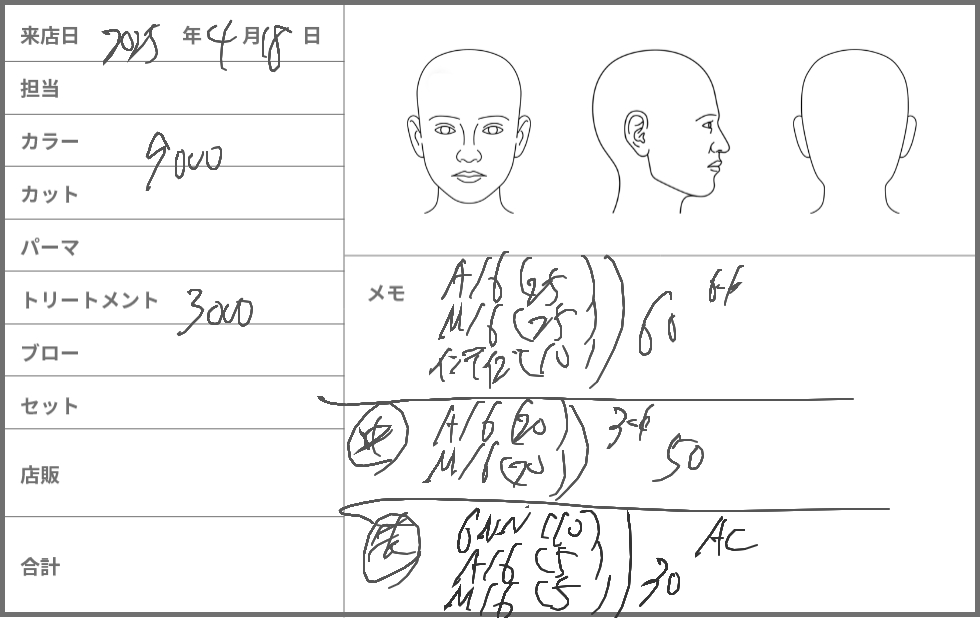 来店日 2025 年 4 月 18 日
担当
カラー 9000
カット
パーマ
トリートメント 3000
ブロー
セット
店販
合計
メモ
A/6 (25)
M/6 (25)
(10)
60
A/6 (20)
M/6
50
6NN (10)
A/6 (5)
M/6 (5)
30
AC